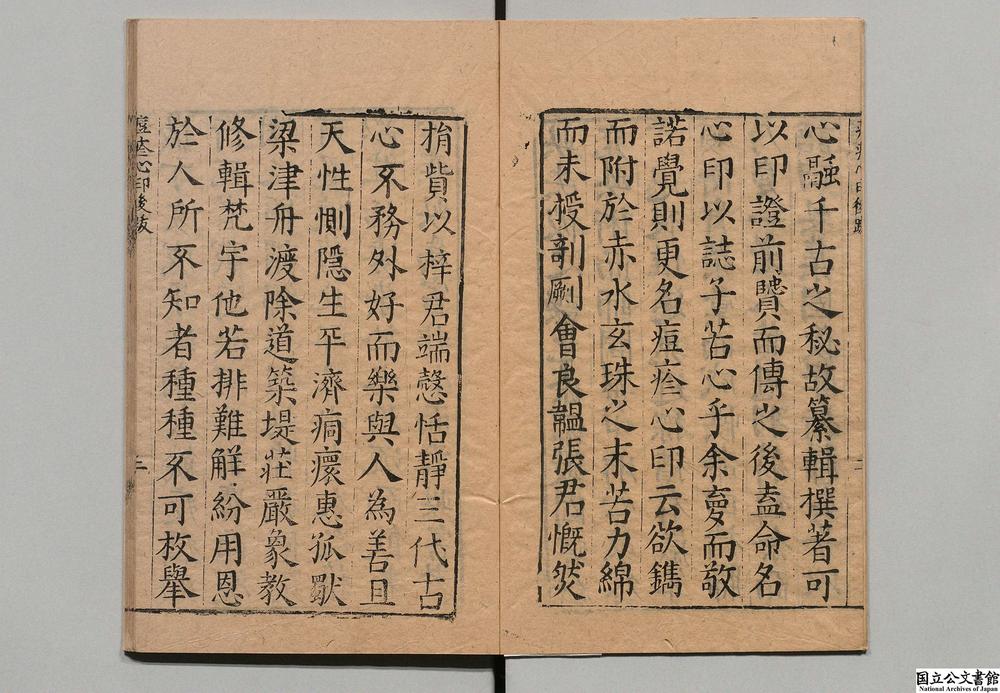 心融千古之秘故纂輯撰著可
以印證前贒而傳之後盍命名
心印以誌子苦心乎余夢而敬
諾覺則更名痘疹心印云欲鐫
而附於赤水玄珠之末苦力綿
而未授剞劂會良韞張君慨然
捐貲以梓君端慤恬靜三代古
心不務外好而樂與人為善且
天性惻隠生平濟痌瘝惠孤獸
梁津舟渡除道築堤莊嚴象教
修輯梵宇他若排難解紛用恩
於人所不知者種種不可枚舉
痘疹心印後跋 三
国立公文書館
National Archives of Japan